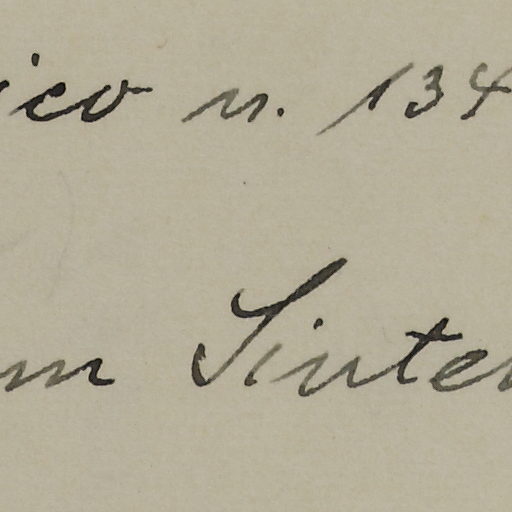 ico n. 134
m Sinten